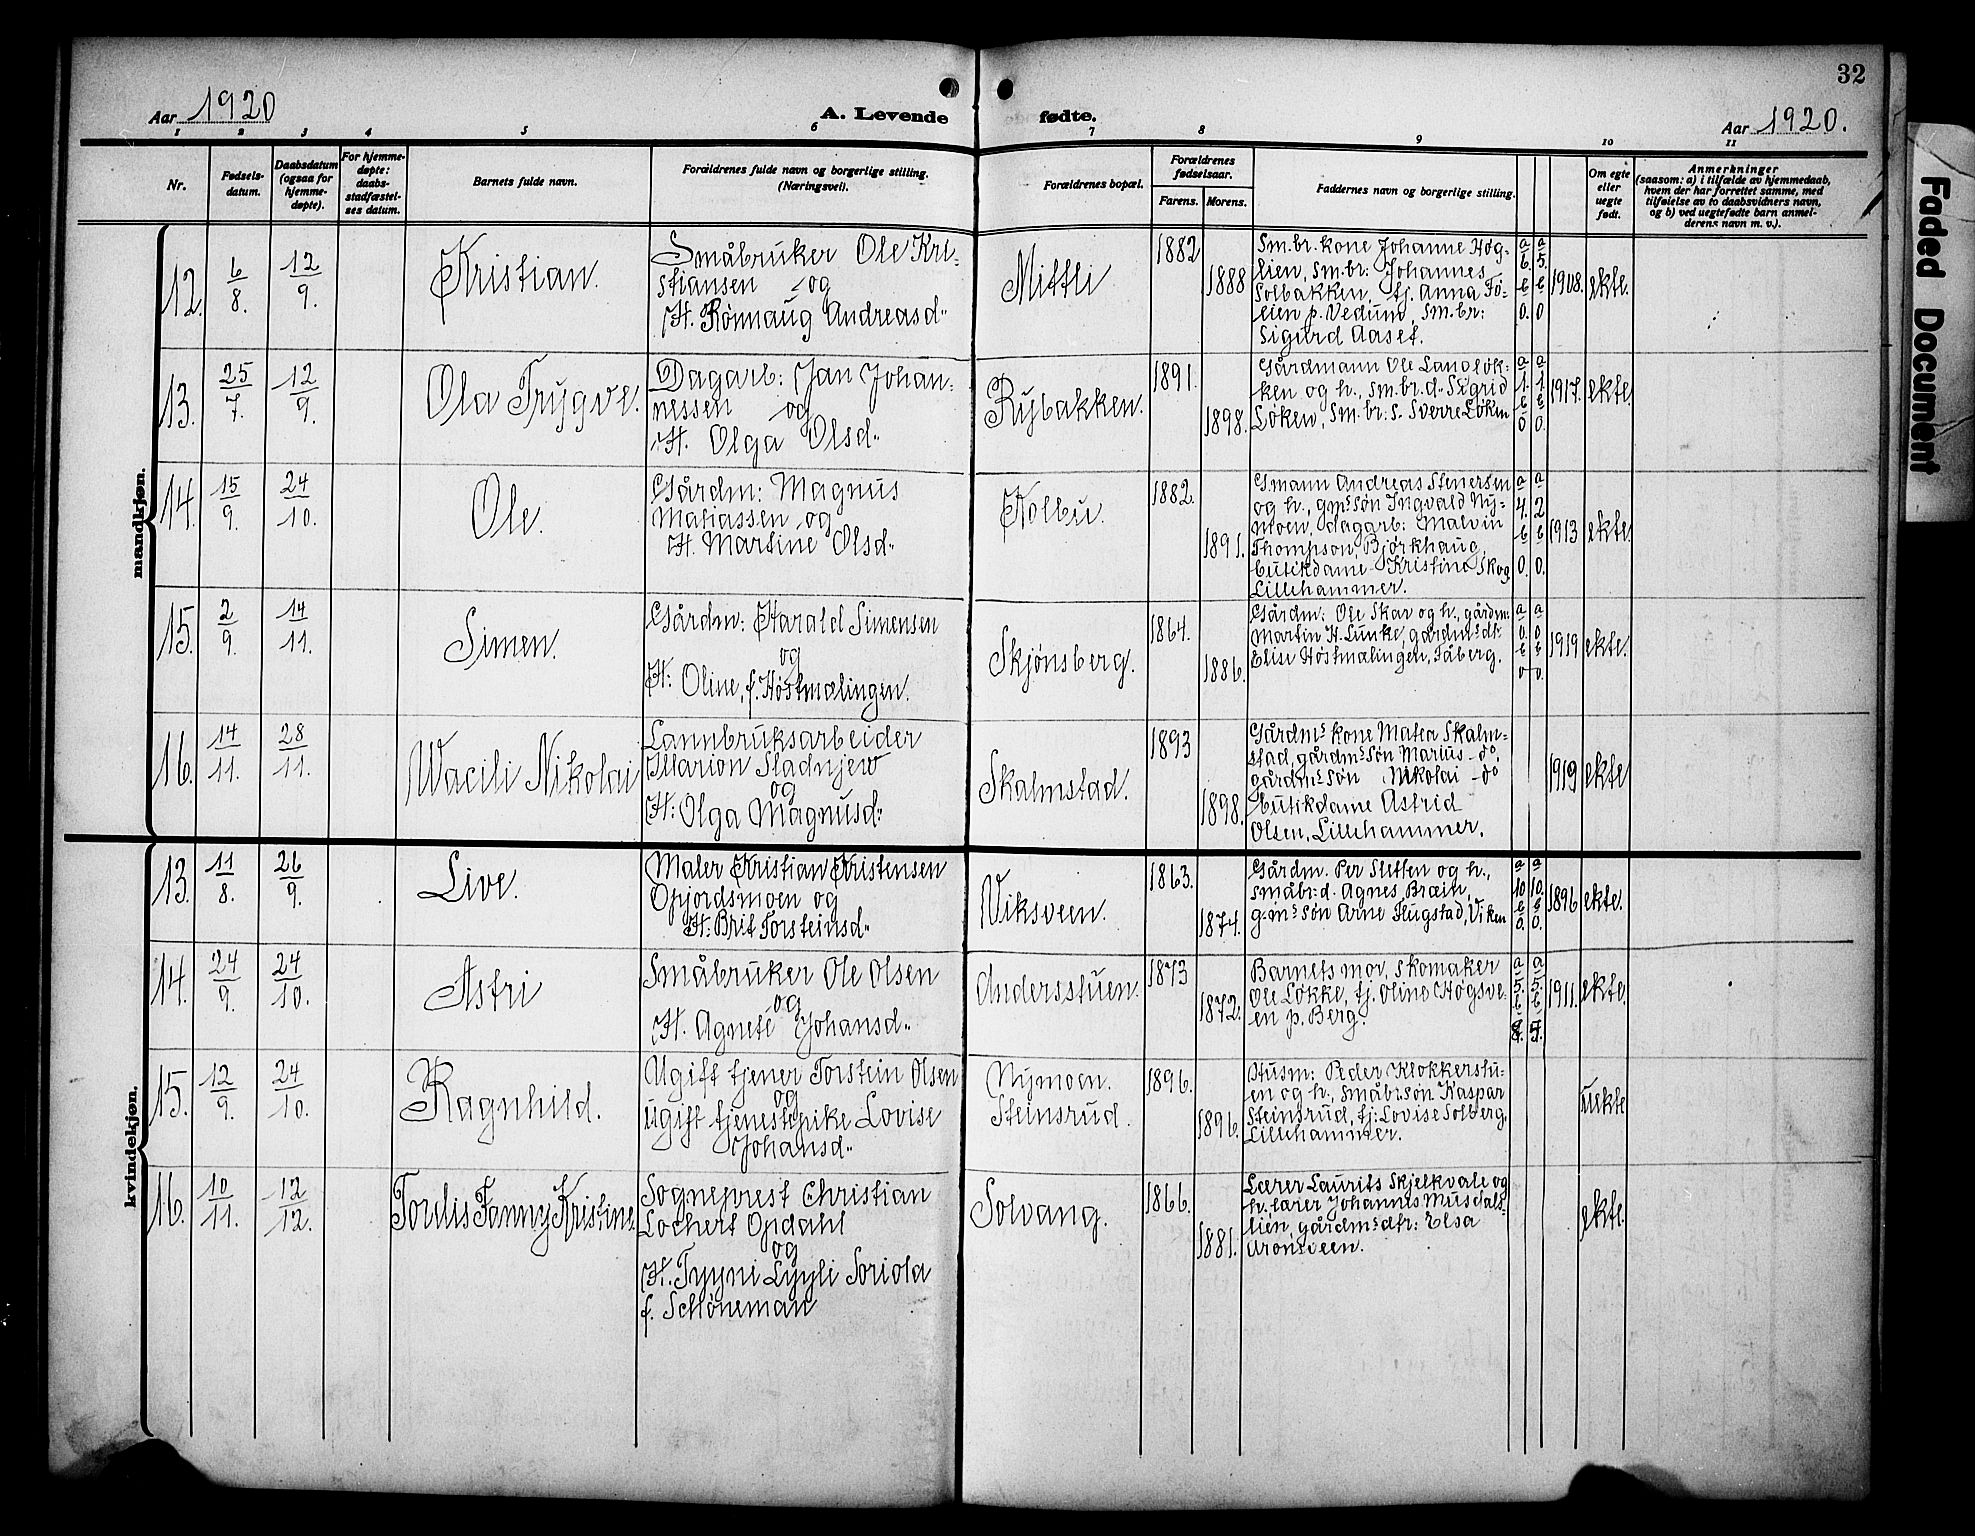 32
Faded Document
Aar 1920
A. Levende fødte.
Aar 1920.
1 2 3 4 5 6 7 8 9 10 11
Nr.
Fødsels-
datum.
Daabsdatum
(ogsaa for
hjemme-
døpte).
For hjemme-
døpte:
daabs-
stadfæstel-
ses datum.
Barnets fulde navn.
Forældrenes fulde navn og borgerlige stilling.
(Næringsvei).
Forældrenes bopæl.
Forældrenes
fødselsaar.
Farens. Morens.
Faddernes navn og borgerlige stilling.
Om egte
eller
uegte
født.
Anmerkninger
(saasom: a) i tilfælde av hjemmedaab,
hvem der har forrettet samme, med
tilføielse av to daabsvidners navn,
og b) ved uegtefødte barn anmel-
derens navn m. v.).
mandkjøn.
12. 6/8. 12/9.
Kristian.
Småbruker Ole Kri-
stiansen og
H. Rønnaug Andreasd..
Mittli
1882
1888
Sm.br. kone Johanne Høg-
lien, sm.br: Johannes
Solbakken, tj. Anna Fø-
eien p. Vedum, sm.br:
Sigurd Aaset.
a 6. b 0.
a 5. b 0
1908.
ekte.
13. 25/7. 12/9.
Ola Trygve.
Dagarb: Jan Johan-
nessen og
H. Olga Olsd..
Rybakken.
1891.
1898.
Gårdmann Ole Landløk-
ken og h., sm.br.d. Sigrid
Løken, sm.br:s. Sverre Løken
a 1. b 0
a 1. b 0.
1917.
ekte.
14. 15/9. 24/10.
Ole.
Gårdm: Magnus
Matiassen og
H. Martine Olsd..
Kolbu.
1882.
1891.
Gmann Andreas Stenersen
og h., gms søn Ingvald Ny-
moen, dagarb: Malvin
Thompson, Bjørkhaug,
butikdame Kristine Skog
Lillehammer.
a 4. b 0.
a 2 b 0.
1913
ekte.
15. 2/9. 14/11.
Simen.
Gårdm: Harald Simensen
og
H: Oline, f. Høstmælingen.
Skjønsberg.
1864.
1886.
Gårdm: Ole Skar og h., gårdm:
Martin H. Lunke, gårdms dtr.
Elise Høstmælingen, Fåberg.
a 0. b 0
a 0 b 0.
1919
ekte.
16. 14/11. 28/11.
Wacili Nikolai
Lannbruksarbeider
Illarion Sladnjew
og
H: Olga Magnusd:
Skalmstad.
1893
1898.
Gårdms kone Matea Skalm-
stad, gårdms søn Marius - do.
gårdms søn Nikolai - do
butikdame Astrid
Olsen, Lillehammer.
1919
ekte
kvindekjøn.
13. 11/8. 26/9.
Live.
Maler Kristian Kristensen
Gjordsmoen og
H: Brit Torsteinsd..
Viksveen.
1863.
1874.
Gårdm. Per Sletten og h.,
småbr:d. Agnes Bræin,
g.ms søn Arne Flugstad, Viken
a 10 b 0.
a 10. b 0.
1896
ekte.
14. 24/9. 24/10.
Astri
Småbruker Ole Olsen
og
H. Agnete Johansd..
Andersstuen.
1873
1872.
Barnets mor, skomaker
Ole Løkke, tj. Oline Høgsve-
en p. Berg.
a 5. b
a 5. b
1911.
ekte.
15. 12/9. 24/10.
Ragnhild.
Ugift tjener Torstein Olsen
og
ugift tjenestpike Lovise
Johansd..
Nymoen.
Steinsrud.
1896.
1896.
Husm: Peder Klokkerstu-
en og h., småbr.søn Kaspar
Steinsrud, tj: Lovise Solberg,
Lillehammer.
uekte
16. 10/11. 12/12.
Tordis Fanny Kristine.
Sogneprest Christian
Lochert Opdahl
og
H. Tyyni Lyyli Soriola
f. Schöneman
Solvang.
1866.
1881.
Lærer Laurits Skjelkvale og
h. lærer Johannes Musdals-
lien, gårdms dtr: Elsa
Aronsveen.
ekte.